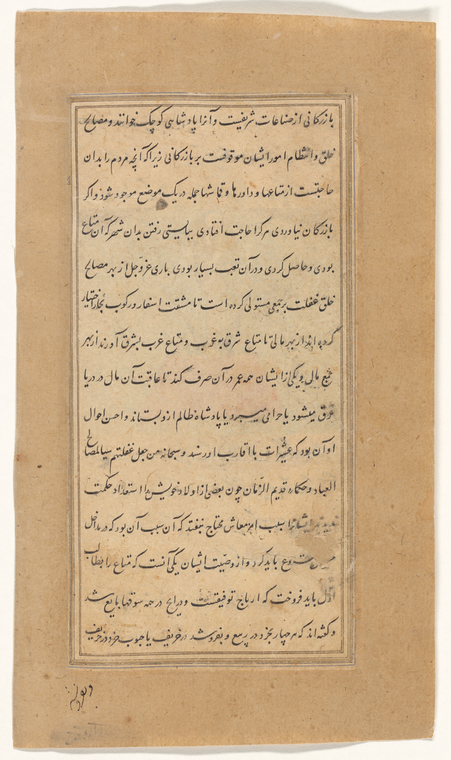 بازرکانی از صناعات شریفست و آنرا پادشاهی کوچک خوانند و مصالح
خلق و انتظام امور ایشان موقوفست بر بازرکانی زیرا که آنچه مردم را بدان
حاجتست از متاعها و داروها و قماشها جمله در یک موضع موجود نشود و اکر
بازرکان نیاوردی هرکرا حاجت افتادی ببایستی رفتن بدان شهر که آن متاع
بودی و حاصل کردی و در آن تعب بسیار بودی باری عز و جل از بهر مصالح
خلق غفلت بر جمعی مستولی کرده است تا مشقت اسفار و رکوب بحار اختیار
کرده اند از بهر مالی تا متاع شرق بغرب و متاع غرب بشرق آورند از بهر
جمع مال و یکی از ایشان همه عمر در آن صرف کند تا عاقبت آن مال در دریا
غرق میشود یا حرامی میبرد یا پادشاه ظالم ازو بستاند و احسن احوال
او آن بود که بمیراث با اقارب او رسد و سبحانه من جعل غفلتهم سببا لمصالح
العباد و حکماء قدیم الزمان چون بعضی از اولاد خویش را استعداد حکمت
ندیدند ایشانرا بسبب امر معاش محتاج نیفتد که آن سبب آن بود که در مداخل
شروع باید کرد و از وصیت ایشان یکی آنست که متاع را بطالب
اول باید فروخت که ارباح توفیقست و درایج در همه سوقها بایع شد
و کفته اند که هر چهار بخرد در ربیع و بفروشد در خریف یا حبوب خرد در خریف